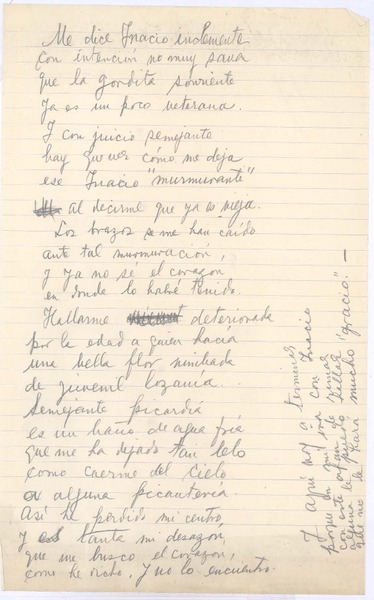 Me dice Inacio inclemente
con intención no muy sana
que la gordita sonriente
ya es un poco veterana.
Y con juicio semejante
hay que ver cómo me deja
ese Inacio "murmurante"
al decirme que ya es vieja.
Los brazos se me han caído
ante tal murmuración,
y ya no sé el corazón
en donde lo habré tenido.
Hallarme deteriorada
por la edad a quien hacía
una bella flor nimbada
de juvenil lozanía.
Semejante picardía
es un baño de agua fría
que me ha dejado tan lelo
como caerme del cielo
a alguna picantería
Así he perdido mi centro
y es tanta mi desazón,
que me busco el corazón,
como he dicho, y no lo encuentro.
Y aquí voy a terminar
porque en mi con Inacio
con este afán de rimar
alguno le puede fallar
y no le hará mucho "gracio". —